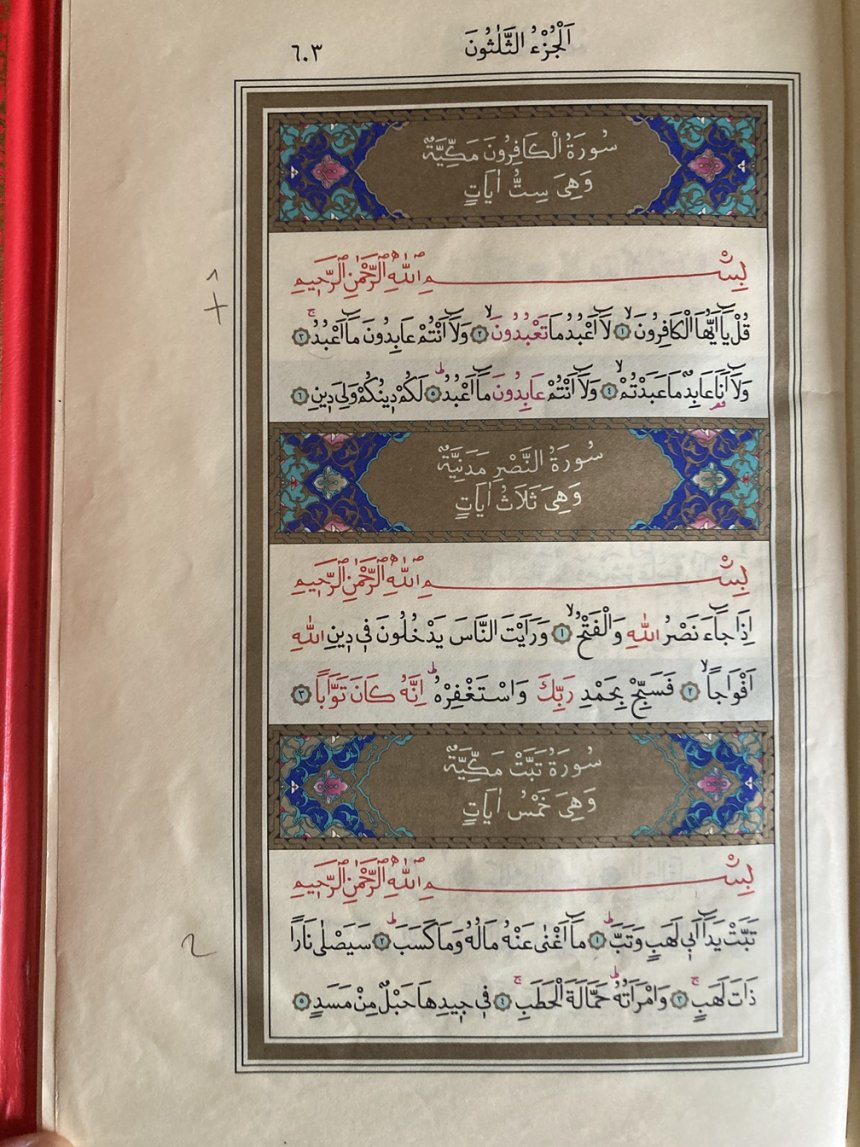 اَلْجُزْءُ الثَّلٰثُونَ
٦٠٣
سُورَةُ الْكَافِرُونَ مَكِّيَّةٌ
وَهِيَ سِتُّ اٰيَاتٍ
بِسْمِ اللّٰهِ الرَّحْمٰنِ الرَّحٖيمِ
قُلْ يَٓا اَيُّهَا الْكَافِرُونَۙ ١ لَٓا اَعْبُدُ مَا تَعْبُدُونَۙ ٢ وَلَٓا اَنْتُمْ عَابِدُونَ مَٓا اَعْبُدُۚ ٣
وَلَٓا اَنَا۬ عَابِدٌ مَا عَبَدْتُمْۙ ٤ وَلَٓا اَنْتُمْ عَابِدُونَ مَٓا اَعْبُدُۜ ٥ لَكُمْ دٖينُكُمْ وَلِيَ دٖينِ ٦
سُورَةُ النَّصْرِ مَدَنِيَّةٌ
وَهِيَ ثَلَاثُ اٰيَاتٍ
بِسْمِ اللّٰهِ الرَّحْمٰنِ الرَّحٖيمِ
اِذَا جَٓاءَ نَصْرُ اللّٰهِ وَالْفَتْحُۙ ١ وَرَاَيْتَ النَّاسَ يَدْخُلُونَ فٖي دٖينِ اللّٰهِ
اَفْوَاجاًۙ ٢ فَسَبِّحْ بِحَمْدِ رَبِّكَ وَاسْتَغْفِرْهُۜ اِنَّهُ كَانَ تَوَّاباً ٣
سُورَةُ تَبَّتْ مَكِّيَّةٌ
وَهِيَ خَمْسُ اٰيَاتٍ
بِسْمِ اللّٰهِ الرَّحْمٰنِ الرَّحٖيمِ
تَبَّتْ يَدَٓا اَبٖي لَهَبٍ وَتَبَّۜ ١ مَٓا اَغْنٰى عَنْهُ مَالُهُ وَمَا كَسَبَۜ ٢ سَيَصْلٰى نَاراً
ذَاتَ لَهَبٍۚ ٣ وَامْرَاَتُهُۜ حَمَّالَةَ الْحَطَبِۚ ٤ فٖي جٖيدِهَا حَبْلٌ مِنْ مَسَدٍ ٥